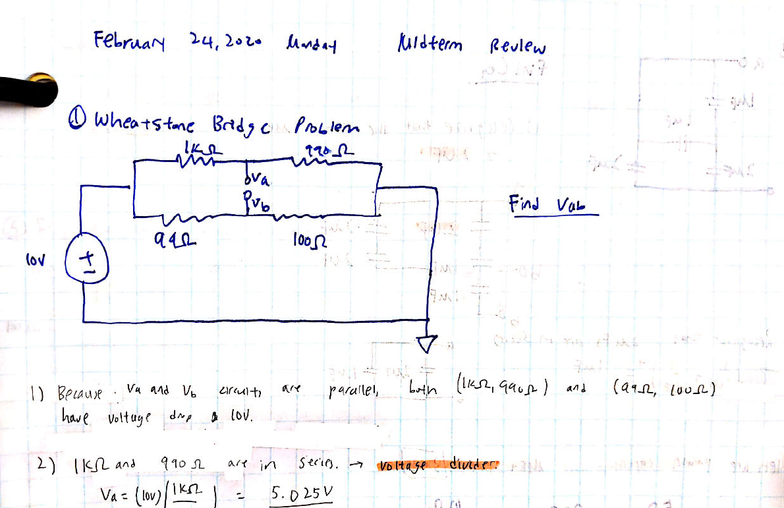 February 24, 2020 Monday Midterm Review
① Wheatstone Bridge Problem
1KΩ 990Ω
Va
Vb
Find Vab
99Ω 100Ω
10V
+
1) Because Va and Vb circuits are parallel, both (1KΩ, 990Ω) and (99Ω, 100Ω)
have voltage drop 10V.
2) 1KΩ and 990Ω are in series. → voltage divider.
Va = (10V) (1KΩ ) = 5.025V